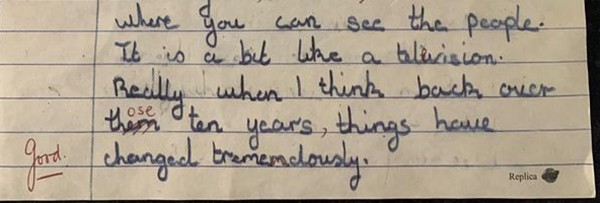 where you can see the people.
It is a bit like a television.
Really when I think back over
ose
them ten years, things have
Good. changed trememdously.
Replica